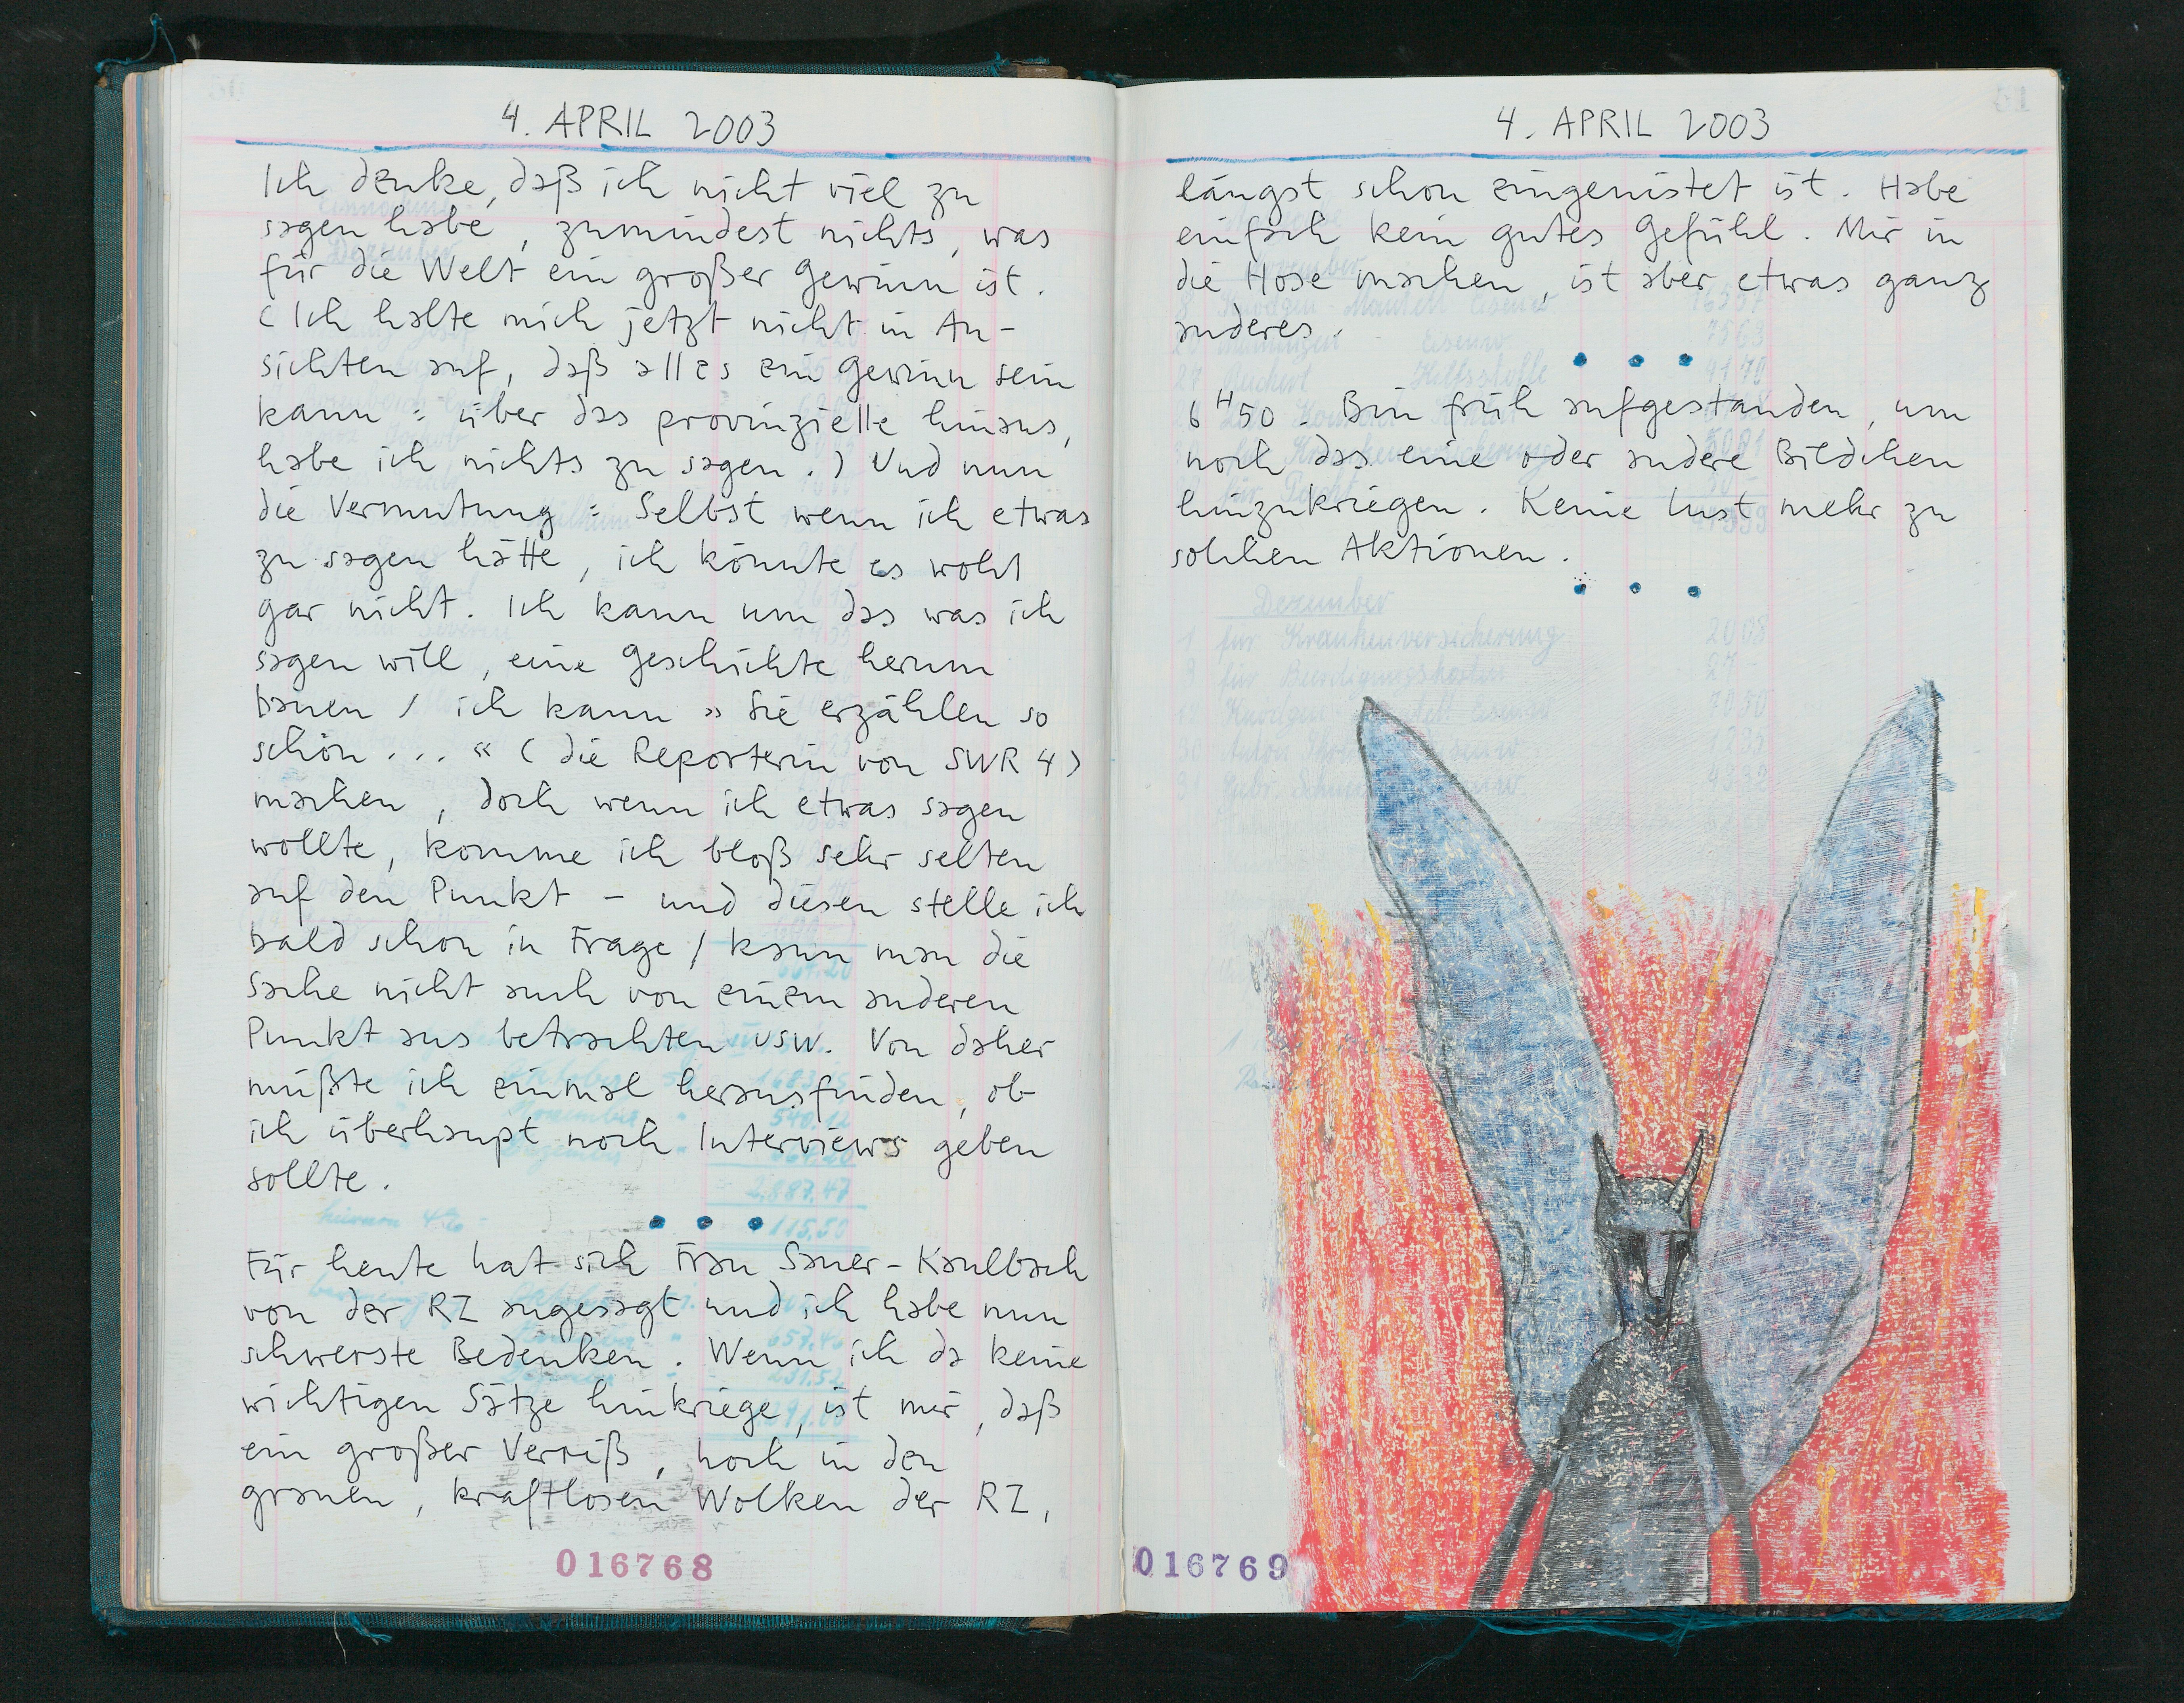 4. APRIL 2003
Ich denke, daß ich nicht viel zu
sagen habe, zumindest nichts, was
für die Welt ein großer Gewinn ist.
(Ich halte mich jetzt nicht in An-
sichten auf, daß alles ein Gewinn sein
kann: über das provinzielle hinaus,
habe ich nichts zu sagen.) Und nun
die Vermutung: Selbst wenn ich etwas
zu sagen hätte, ich könnte es wohl
gar nicht. Ich kann um das was ich
sagen will, eine Geschichte herum
bauen / ich kann »Sie erzählen so
schön...« (die Reporterin von SWR 4)
machen, doch wenn ich etwas sagen
wollte, komme ich bloß sehr selten
auf den Punkt – und diesen stelle ich
bald schon in Frage / kann man die
Sache nicht auch von einem anderen
Punkt aus betrachten usw. Von daher
müßte ich einmal herausfinden, ob
ich überhaupt noch Interviews geben
sollte.
Für heute hat sich Frau Sauer-Kaulbach
von der RZ angesagt und ich habe nun
schwerste Bedenken. Wenn ich da keine
wichtigen Sätze hinkriege, ist mir, daß
ein großer Verriß, hoch in den
grauen, kraftlosen Wolken der RZ,
016768
4. APRIL 2003
längst schon eingenistet ist. Habe
einfach kein gutes Gefühl. Mir in
die Hose machen, ist aber etwas ganz
anderes.
6 H 50. Bin früh aufgestanden, um
noch das eine oder andere Bildchen
hinzukriegen. Keine Lust mehr zu
solchen Aktionen.
Dezember
1 für Krankenversicherung 2008
016769